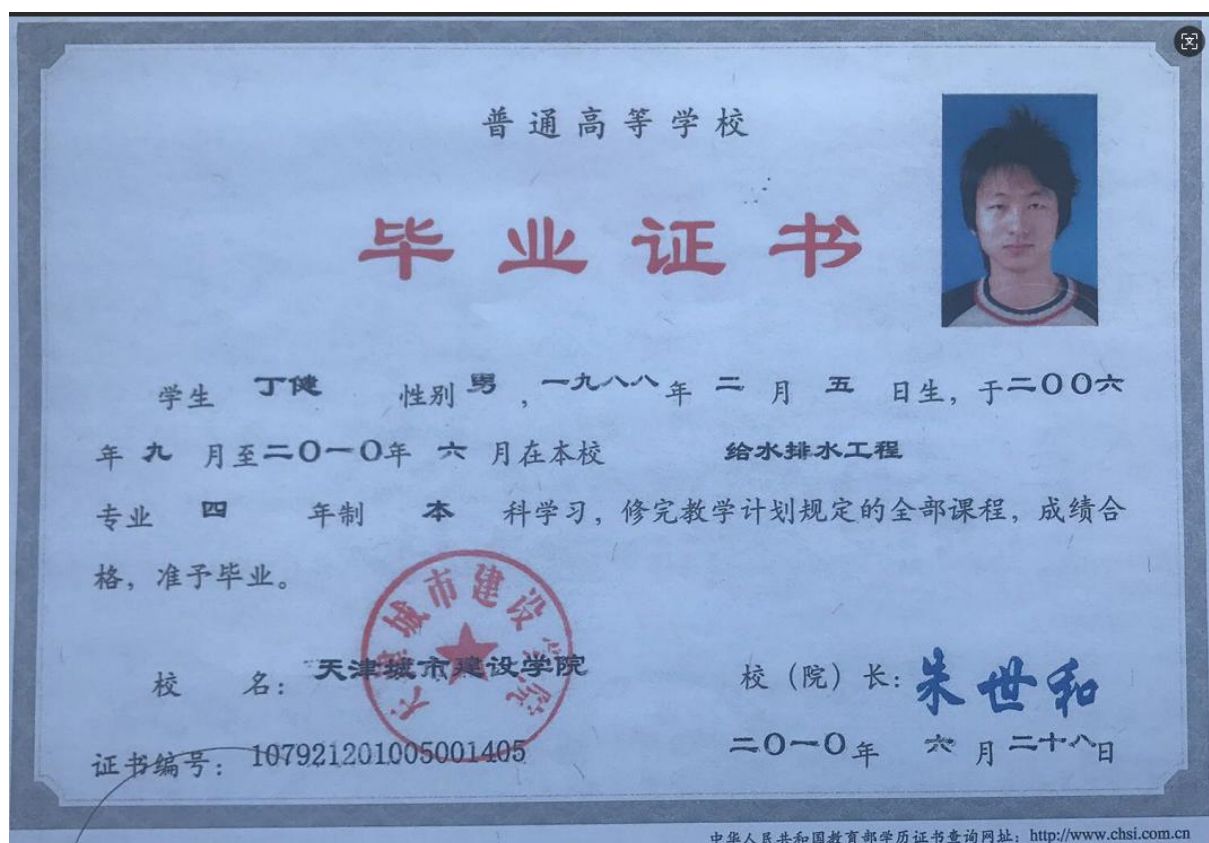 普通高等学校
毕业证书
学生 丁健 性别 男 , 一九八八 年 二 月 五 日生, 于二〇〇六
年 九 月至二〇一〇年 六 月在本校 给水排水工程
专业 四 年制 本 科学习, 修完教学计划规定的全部课程, 成绩合
格, 准予毕业。
天津城市建设学院
校 名: 天津城市建设学院 校(院)长: 朱世和
证书编号: 107921201005001405 二〇一〇年 六 月 二十八日
中华人民共和国教育部学历证书查询网址: http://www.chsi.com.cn